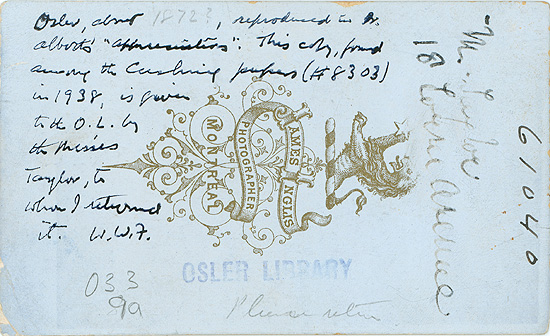 Osler, about 1872?, reproduced in Dr.
Abbott's "Appreciations". This copy, found
among the Cushing papers (#8303)
in 1938, is given
to the O.L. by
the Misses
Taylor, to
whom I returned
it. W.W.F.
JAMES INGLIS
PHOTOGRAPHER
MONTREAL
OSLER LIBRARY
033
9a
Please return
Taylor
18 Avenue
61040